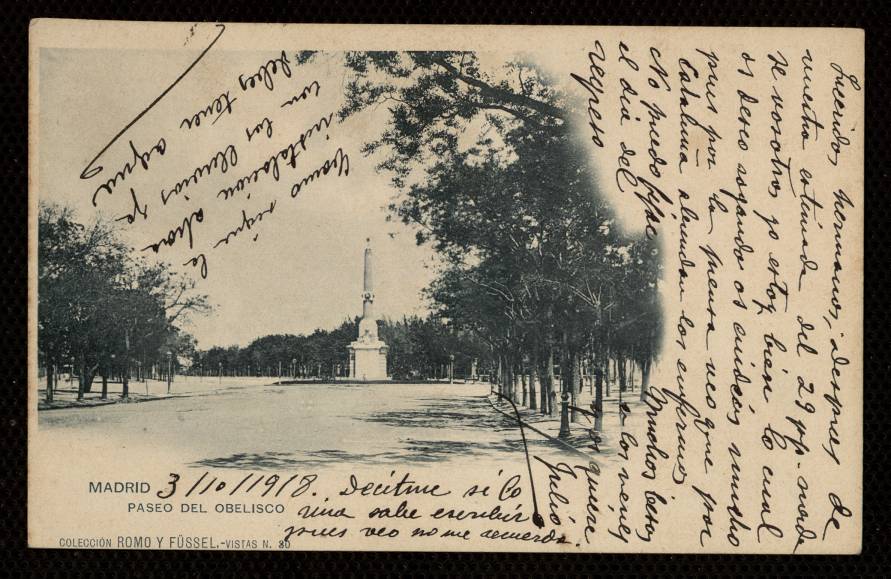 Queridos hermanos, despues de
vuestra estimada del 29 ppº nada
se vosotros, yo estoy bien lo cual
os deseo rogando os cuideis mucho
pues por la prensa veo que por
Cataluña abundan los enfermos
No puedo fijar
el dia del
regreso
Muchos besos
a los nenes
y os quiere
Julio
Como sigue la
instalacion ahora
con los lluvias ya
debes tener agua
MADRID 3/10/1918. Decitme si Co
PASEO DEL OBELISCO
una sabe escribir
pues veo no me acuerda.
COLECCIÓN ROMO Y FÜSSEL.-VISTAS N. 30